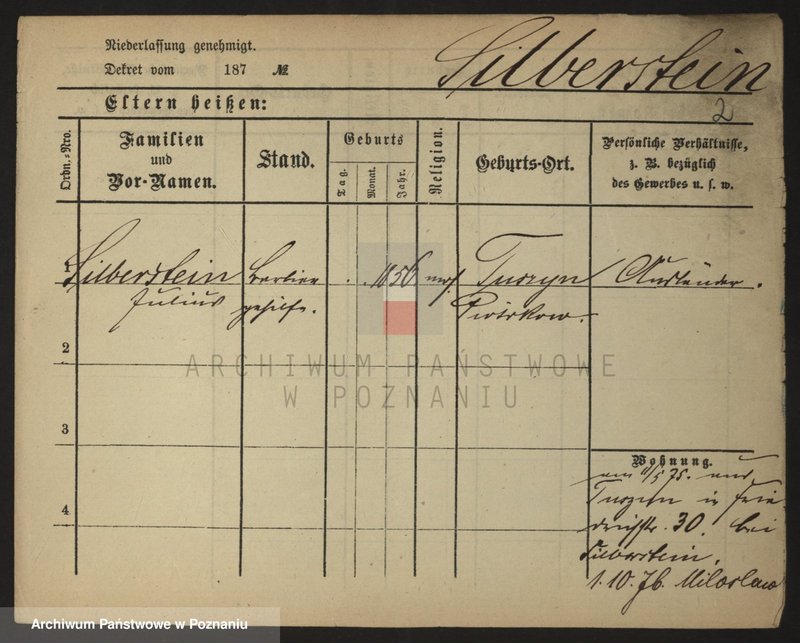 Niederlassung genehmigt.
Dekret vom 187 №
Silberstein
2
Eltern heißen:
Ordn.-Nro.
Familien
und
Vor-Namen.
Stand.
Geburts
Tag.
Monat.
Jahr.
Religion.
Geburts-Ort.
Persönliche Verhältnisse,
z. B. bezüglich
des Gewerbes u. s. w.
1 Silberstein Barbier . . 1856 mos. Tuszyn Ausländer.
Julius gehilfe. Piotrkow.
2
3
4
Wohnung.
75.
Tuszyn in Frie
drichstr. 30. bei
Silberstein.
1.10.76. Miloslaw
ARCHIWUM PAŃSTWOWE
W POZNANIU
Archiwum Państwowe w Poznaniu